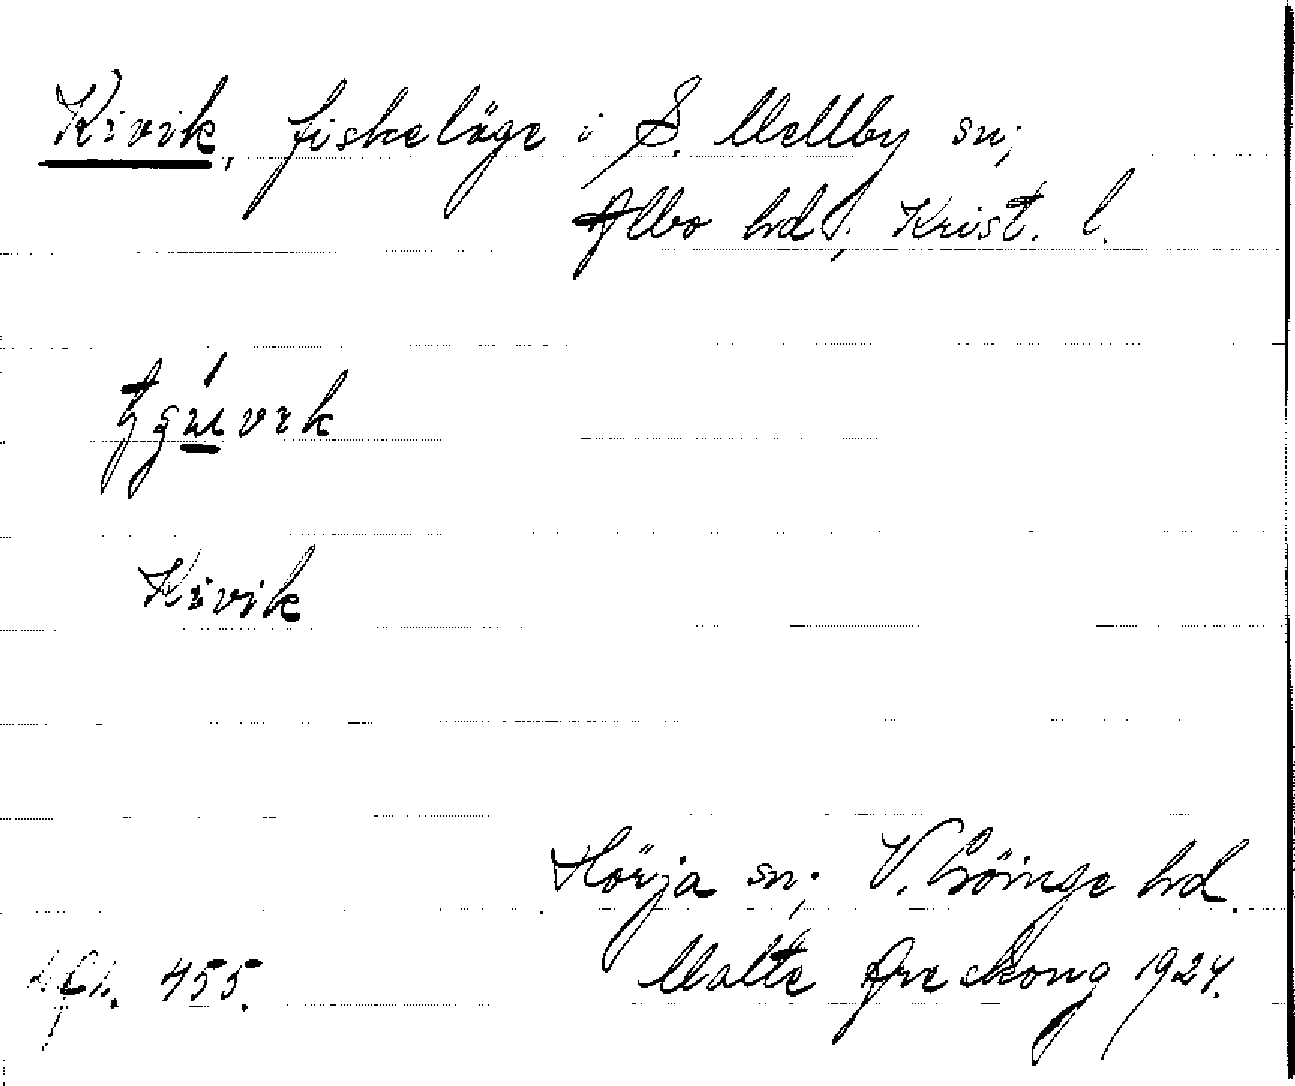 Kivik, fiskeläge i S. Mellby sn;
Albo hd, Krist. l.
Kivik
Hörja sn; V. Göinge hd.
Malte Areskoug 1924.
455.